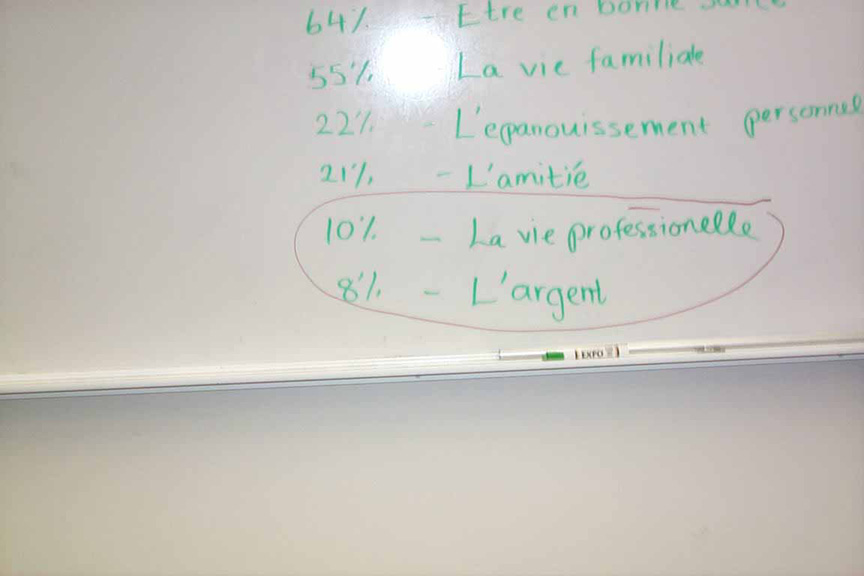 64% - Etre en bonne santé
55% - La vie familiale
22% - L'epanouissement personnel
21% - L'amitié
10% - La vie professionelle
8% - L'argent
EXPO